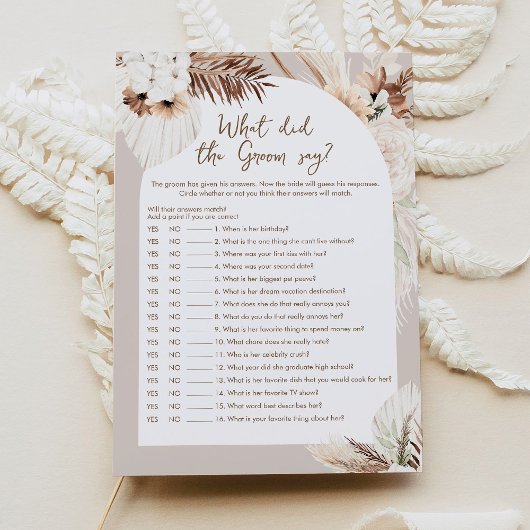 What did
the Groom say?
The groom has given his answers. Now the bride will guess his responses.
Circle whether or not you think their answers will match.
Will their answers match?
Add a point if you are correct
YES NO ______ 1. When is her birthday?
YES NO ______ 2. What is the one thing she can't live without?
YES NO ______ 3. Where was your first kiss with her?
YES NO ______ 4. Where was your second date?
YES NO ______ 5. What is her biggest pet peeve?
YES NO ______ 6. What is her dream vacation destination?
YES NO ______ 7. What does she do that really annoys you?
YES NO ______ 8. What do you do that really annoys her?
YES NO ______ 9. What is her favorite thing to spend money on?
YES NO ______ 10. What chore does she really hate?
YES NO ______ 11. Who is her celebrity crush?
YES NO ______ 12. What year did she graduate high school?
YES NO ______ 13. What is her favorite dish that you would cook for her?
YES NO ______ 14. What is her favorite TV show?
YES NO ______ 15. What word best describes her?
YES NO ______ 16. What is your favorite thing about her?